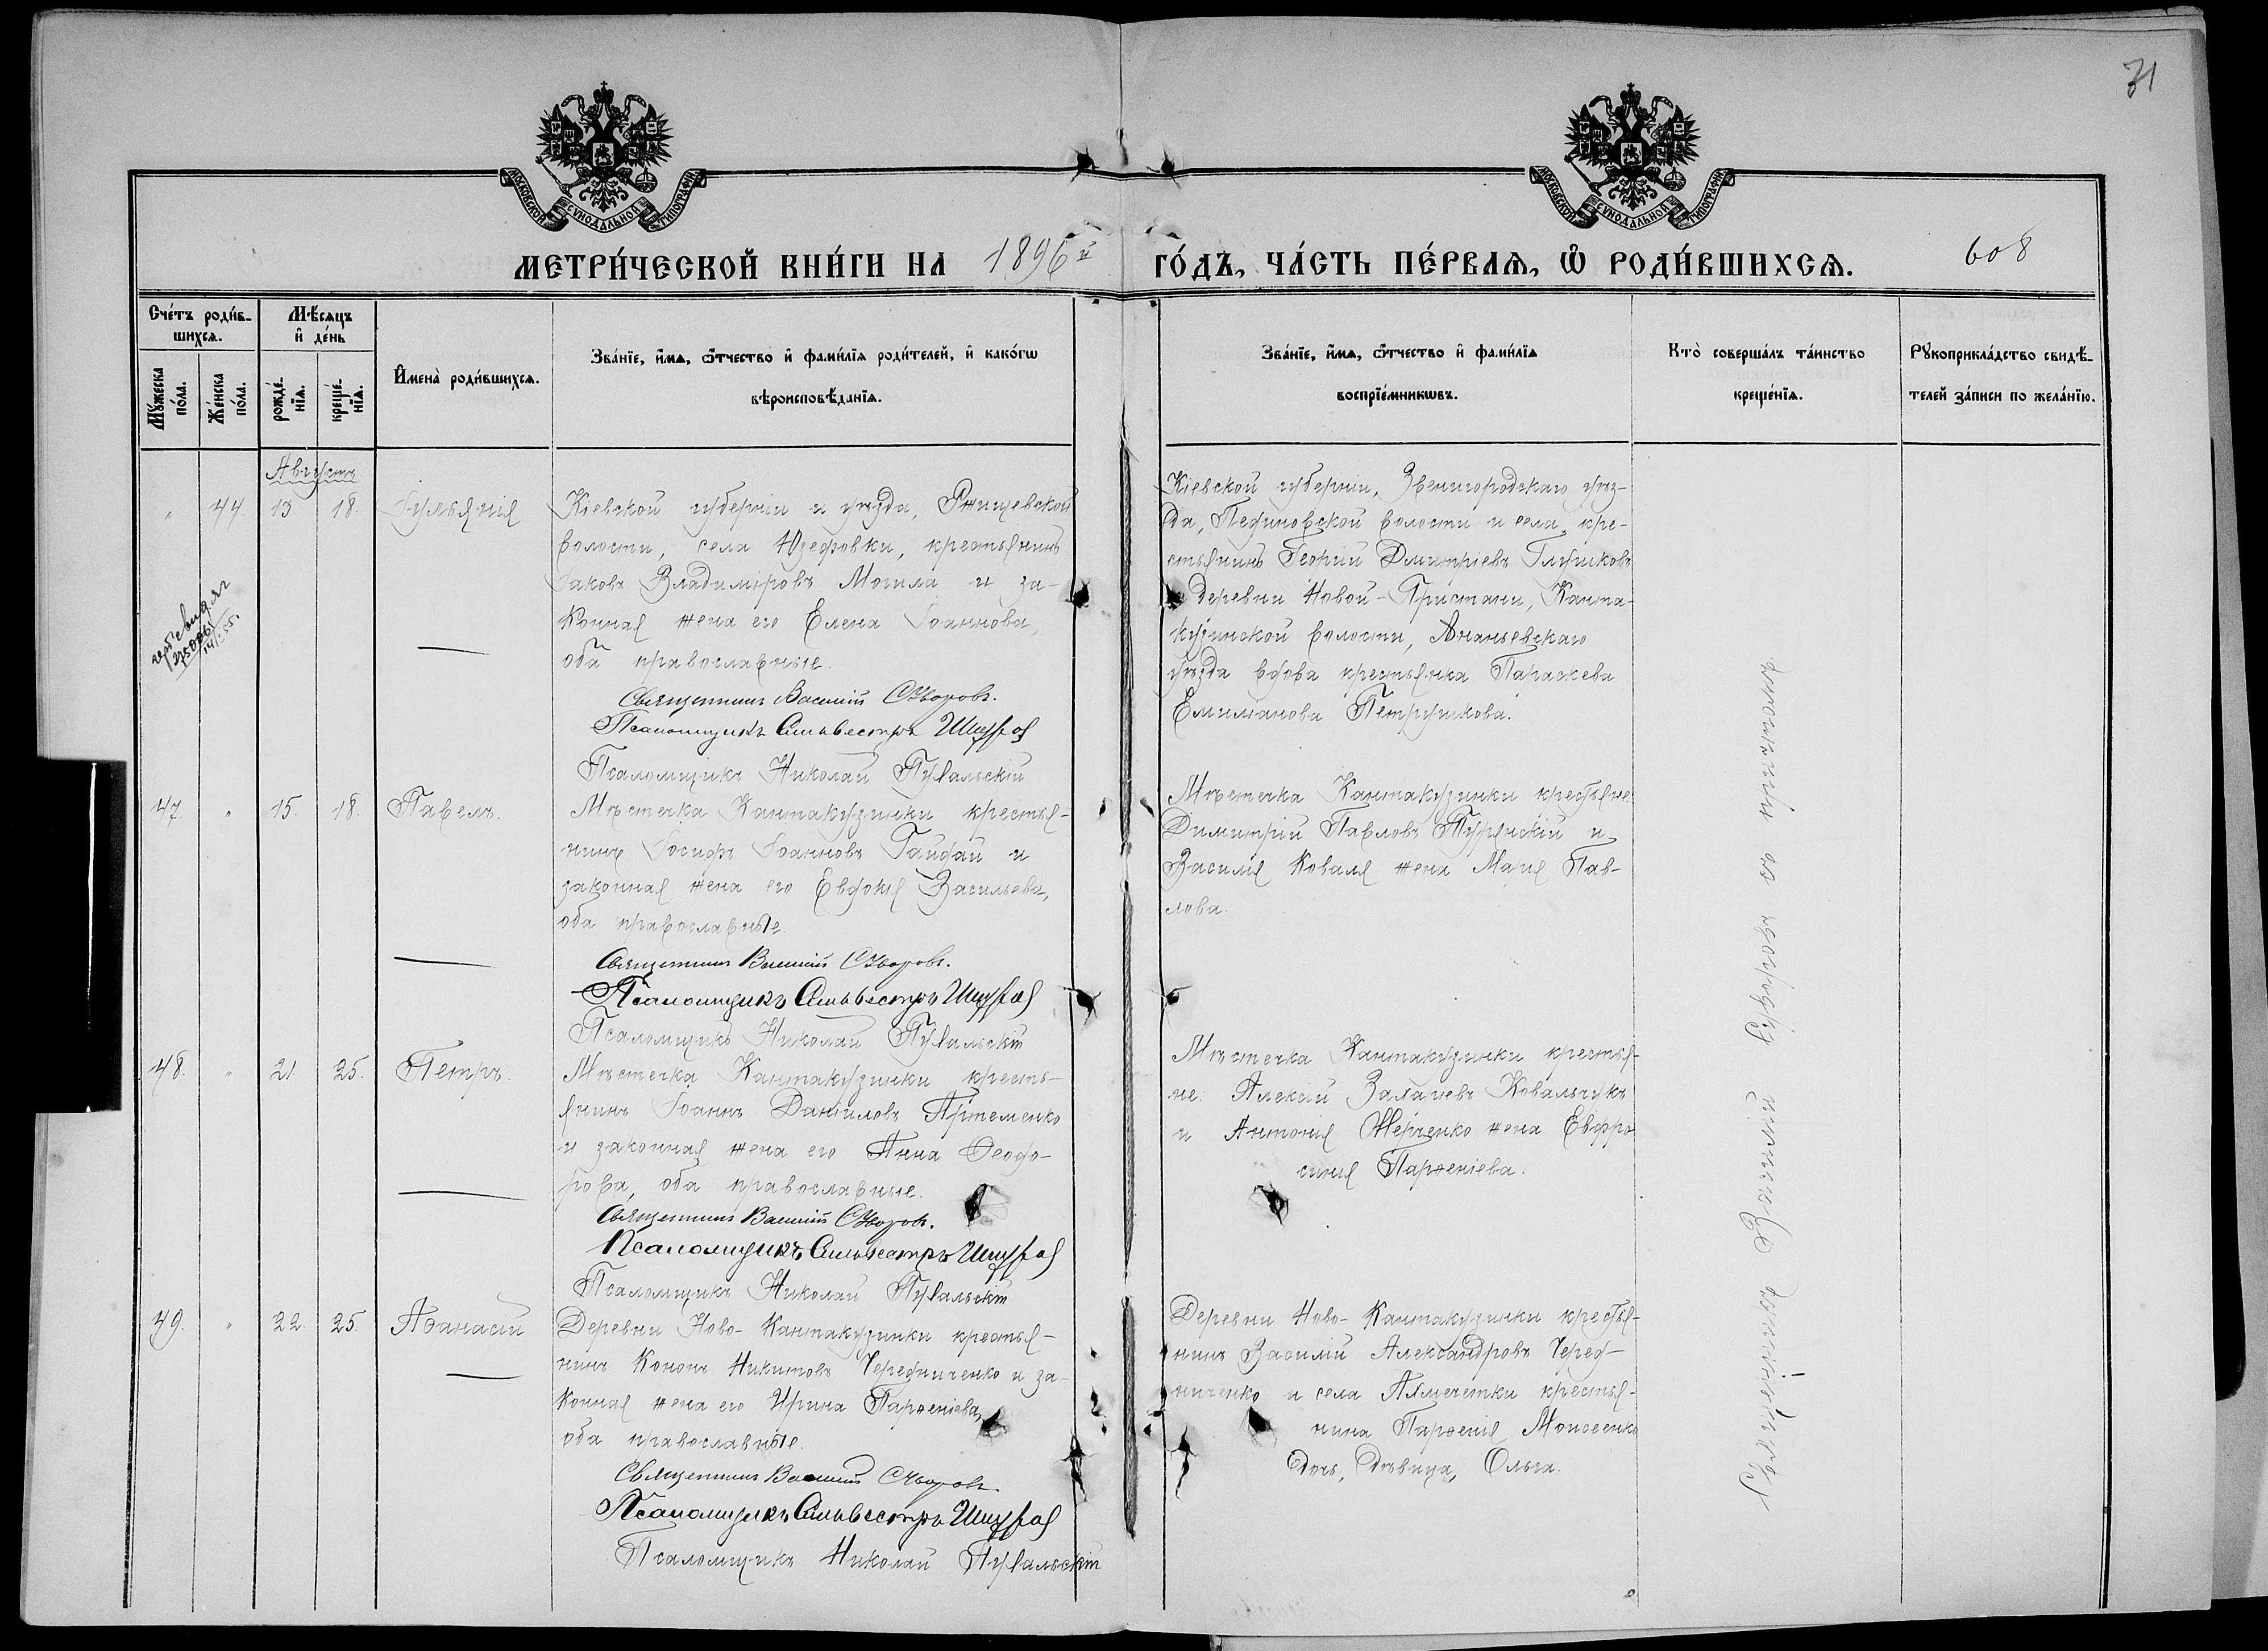 31
МОСКОВСКОЙ СѴНОДАЛЬНОЙ ТИПОГРАФІИ
МОСКОВСКОЙ СѴНОДАЛЬНОЙ ТИПОГРАФІИ
МЕТРИ́ЧЕСКОЙ КНИ́ГИ НА 1896й ГО́ДЪ, ЧА́СТЬ ПЕ́РВАѦ, Ѡ РОДИ́ВШИХСѦ.
608
Сче́тъ роди́в-
шихсѧ.
Мꙋ́жеска по́ла.
Же́нска по́ла.
Мѣ́сѧцъ
и҆ де́нь
рожде́-
нїѧ.
креще́-
нїѧ.
И҆мена̀ роди́вшихсѧ.
Зва́нїе, и҆́мѧ, ѻ҆́тчество и҆ фами́лїѧ роди́телей, и҆ како́гѡ
вѣроисповѣ́данїѧ.
Зва́нїе, и҆́мѧ, ѻ҆́тчество и҆ фами́лїѧ
воспрїе́мникѡвъ.
Кто̀ соверша́лъ та́инство
креще́нїѧ.
Рꙋкоприкла́дство свидѣ́-
телей за́писи по жела́нїю.
Августъ
" 44. 13 18. Іульянія
Кіевской губерніи и уѣзда, Ржищевской
волости, села Юзефовки, крестьянинъ
Іаковъ Владиміровъ Могила и за-
конная жена его Елена Іоаннова,
оба православные.
Священникъ Василій Суворовъ.
Псаломщикъ Сильвестръ
Псаломщикъ Николай
Кіевской губерніи, Звенигородскаго уѣз-
да, Пединовской волости и села, кре-
стьянинъ Георгій Дмитріевъ Глушковъ
и деревни Новой-Пристани, Канта-
кузинской волости, Ананьевскаго
уѣзда вдова крестьянка Параскева
Емиліанова Петрушкова.
47. " 15. 18. Павелъ.
Мѣстечка Кантакузинки крестья-
нинъ Іосифъ Іоанновъ Гайдай и
законная жена его Евдокія Васильева,
оба православные.
Священникъ Василій Суворовъ.
Псаломщикъ Сильвестръ
Псаломщикъ Николай
Мѣстечка Кантакузинки крестьяне:
Димитрій Павловъ и
Василія Коваля жена Марія Пав-
лова.
48. " 21. 25. Петръ.
Мѣстечка Кантакузинки кресть-
янинъ Іоаннъ Даніиловъ Артеменко
и законная жена его Анна Ѳеодо-
рова, оба православные.
Священникъ Василій Суворовъ.
Псаломщикъ Сильвестръ
Псаломщикъ Николай
Мѣстечка Кантакузинки крестья-
не: Алексій Ковальчукъ
и Антонія жена Евфро-
синія Парѳеніева.
49. " 22. 25. Аѳанасій
Деревни Ново-Кантакузинки крестья-
нинъ Кононъ Никитовъ Чередниченко и за-
конная жена его Ирина Парѳеніева,
оба православные.
Священникъ Василій Суворовъ.
Псаломщикъ Сильвестръ
Псаломщикъ Николай
Деревни Ново-Кантакузинки крестья-
нинъ Василій Александровъ Черед-
ниченко и села Акмечетки крестья-
нина Парѳенія Моисеенко
дочь, дѣвица, Ольга.
Священникъ Василій Суворовъ съ псаломщикомъ